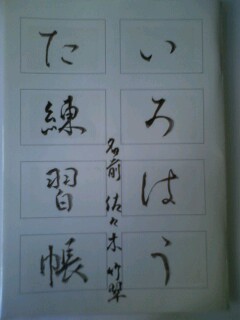 いろはう
名前 佐々木
た練習帳